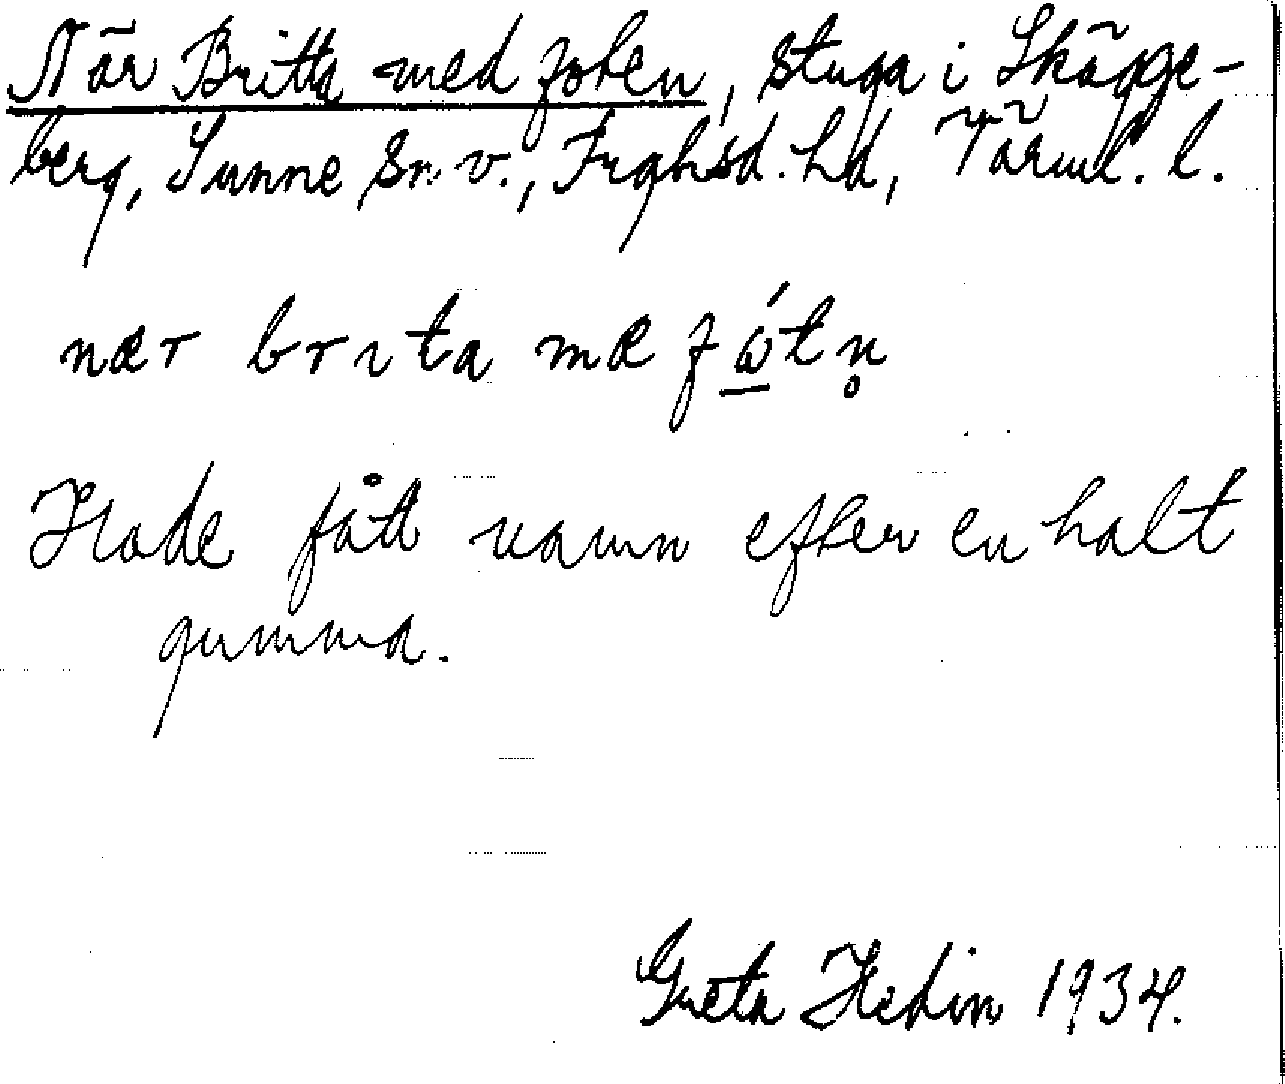 När Britta med foten, stuga i Skägge-
berg, Sunne sn v., Frykhsd. hd, Värml. l.
nær brıta mæ fώtn̥
Hade fått namn efter en halt
gumma.
Greta Hedin 1934.